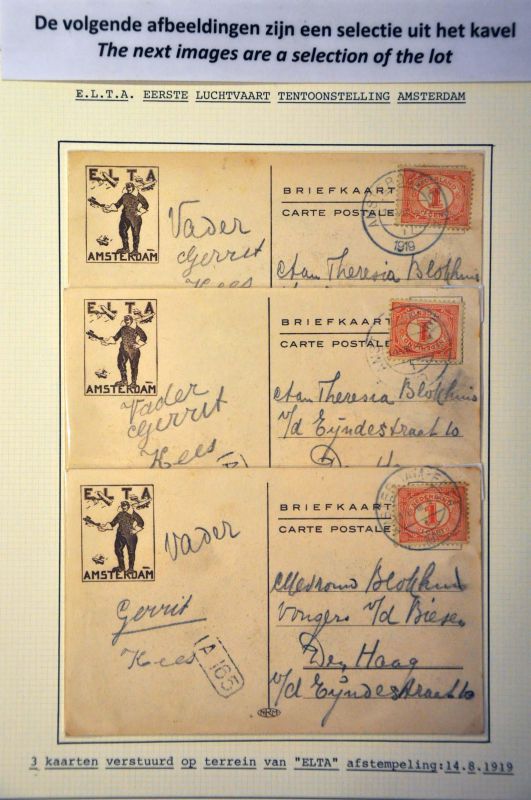 De volgende afbeeldingen zijn een selectie uit het kavel
The next images are a selection of the lot
E.L.T.A. EERSTE LUCHTVAART TENTOONSTELLING AMSTERDAM
ELTA
AMSTERDAM
Vader
Gerrit
Kees
BRIEFKAART
CARTE POSTALE
1
1919
Aan Theresia Blokhuis
ELTA
AMSTERDAM
Vader
Gerrit
Kees
IA
BRIEFKAART
CARTE POSTALE
1
Aan Theresia Blokhuis
v/d Eyndestraat 10
ELTA
AMSTERDAM
Vader
Gerrit
Kees
IA 165
BRIEFKAART
CARTE POSTALE
1
Mevrouw Blokhuis
Vongers v/d Biesen
Den Haag
v/d Eyndestraat 10
NRM
3 kaarten verstuurd op terrein van "ELTA" afstempeling:14.8.1919